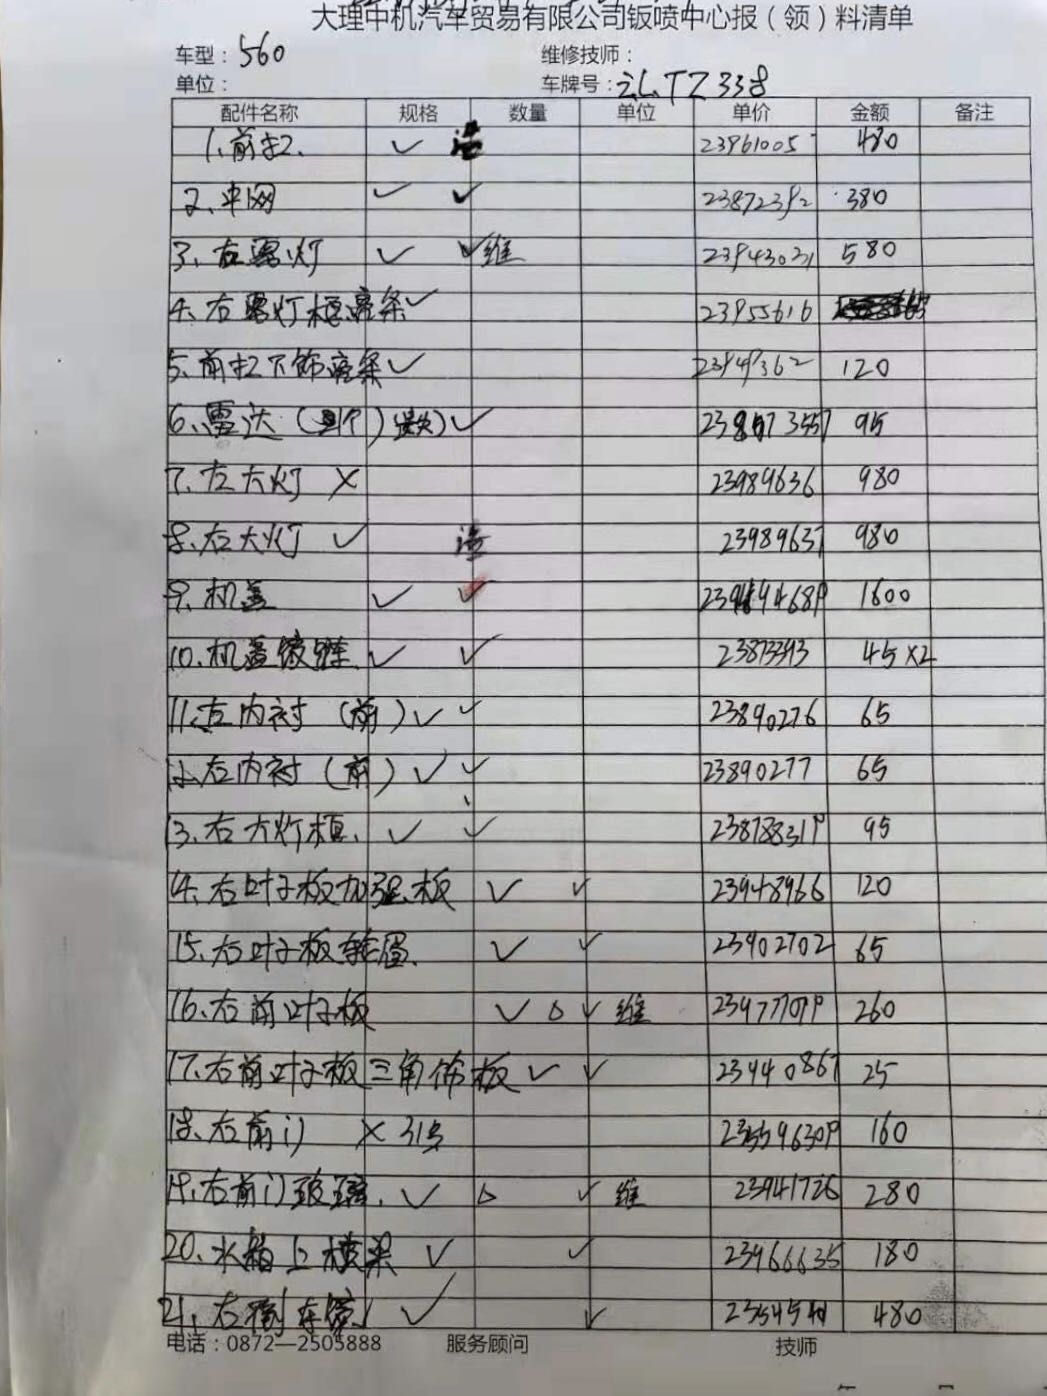 大理中机汽车贸易有限公司钣喷中心报（领）料清单
车型：560 维修技师：
单位： 车牌号：云LTZ338
配件名称 规格 数量 单位 单价 金额 备注
1、前杠、 ✓ 23961005 480
2、中网 ✓ ✓ 23872392 380
3、右雾灯 ✓ ✓ 维 23943021 580
4、右雾灯框亮条 ✓ 23955616
5、前杠下饰亮条 ✓ 23949362 120
6、雷达 ✓ 95
7、左大灯 × 23989636 980
8、右大灯 ✓ 23989637 980
9、机盖 ✓ ✓ 1600
10、机盖铰链 ✓ ✓ 23873393 45×2
11、左内衬（前）✓ ✓ 23890276 65
12、右内衬（前）✓ ✓ 23890277 65
13、右大灯框、 ✓ ✓ 95
14、右叶子板加强板 ✓ ✓ 23948966 120
15、右叶子板轮眉、 ✓ ✓ 23902702 65
16、右前叶子板 ✓ △ ✓ 维 260
17、右前叶子板三角饰板 ✓ ✓ 23440867 25
18、右前门 × 160
19、右前门玻璃、 ✓ △ ✓ 维 23941726 280
20、水箱上横梁 ✓ ✓ 23966635 180
21、右倒车镜 ✓ ✓ 480
电话：0872—2505888 服务顾问 技师